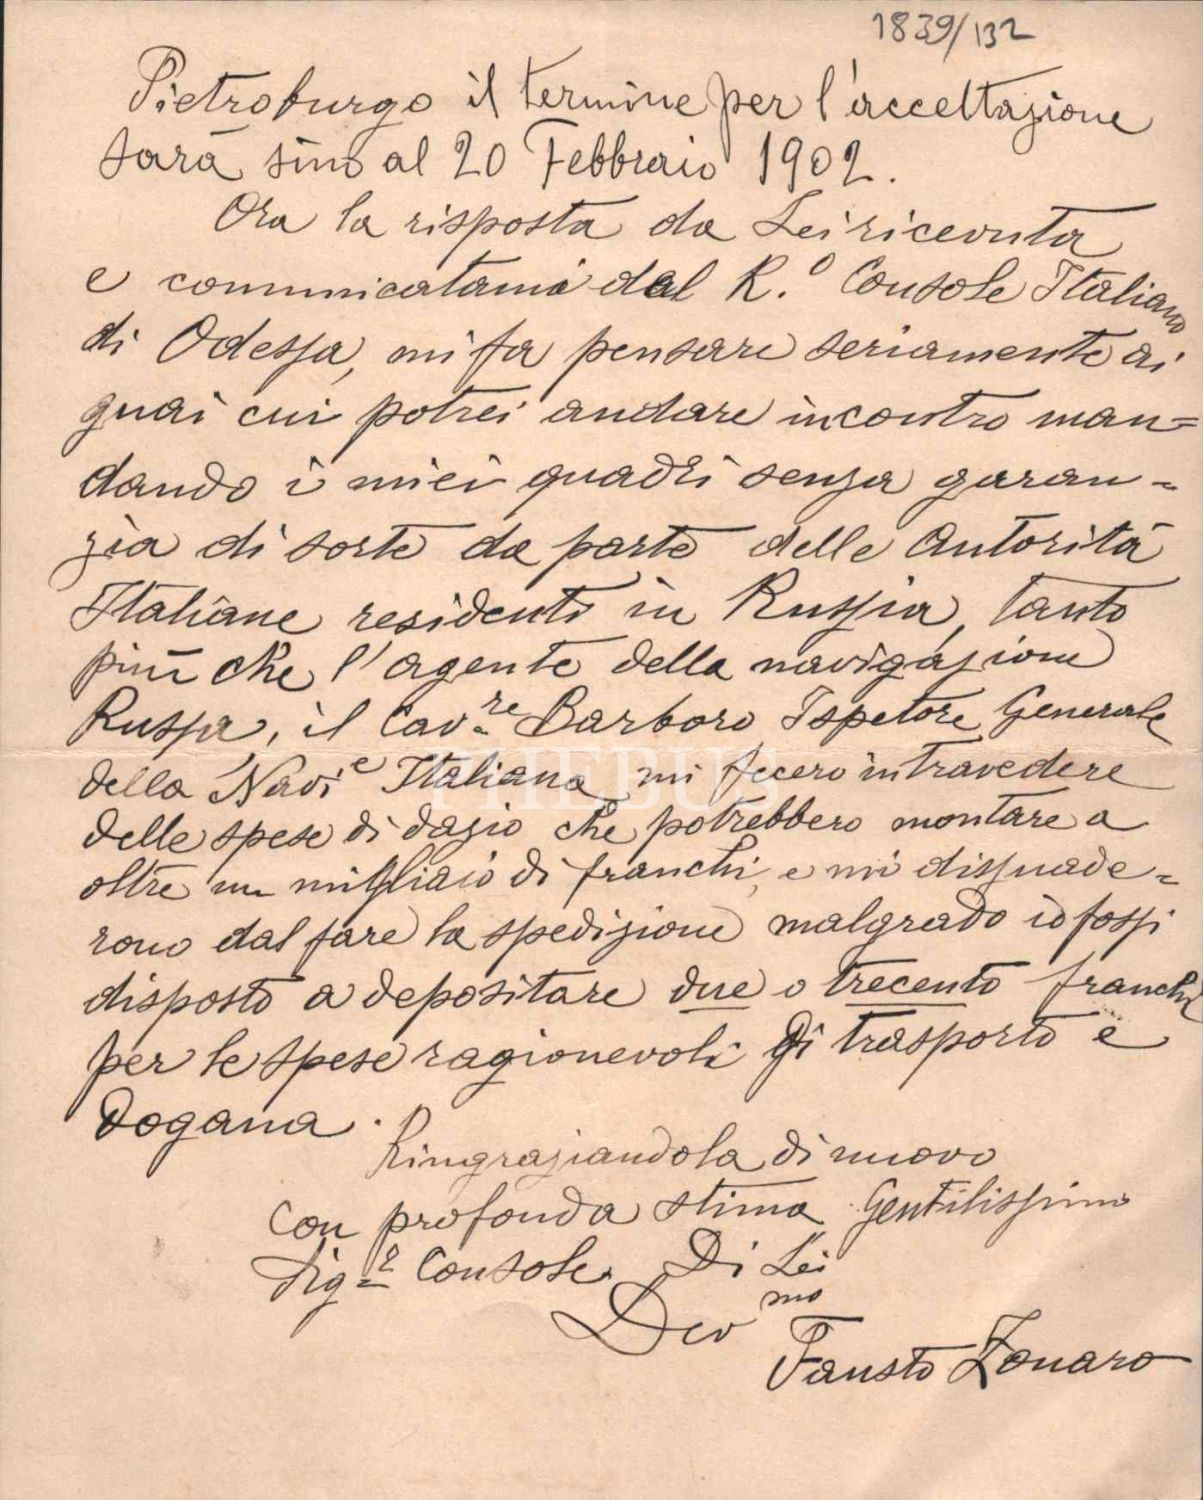 1839/132
Pietroburgo il termine per l'accettazione
sarà sino al 20 Febbraio 1902.
Ora la risposta da Lei ricevuta
e comunicatami dal R.º Console Italiano
di Odessa, mi fa pensare seriamente ai
guai cui potrei andare incontro man=
dando i miei quadri senza garan=
zia di sorte da parte delle Autorità
Italiane residenti in Russia, tanto
più che l'agente della navigazione
Russa, il Cav.re Barboro Ispetore Generale
della Navie Italiana mi fecero intravedere
delle spese di dazio che potrebbero montare a
oltre un migliaio di franchi, e mi dissuade=
rono dal fare la spedizione malgrado io fossi
disposto a depositare due o trecento franchi
per le spese ragionevoli di trasporto e
Dogana.
Ringraziandola di nuovo
con profonda stima Gentilissimo
Sigr Console. Di Lei
Devmo
Fausto Zonaro
PHEBUS